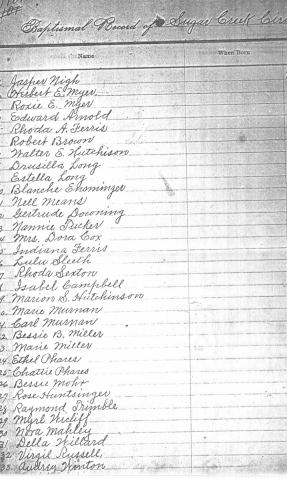 Baptismal Record of Sugar Creek Circ
Name When Born
Jasper Nigh
Herbert E. Myer
Roxie E. Myer
Edward Arnold
Rhoda A. Ferris
Robert Brown
Walter E. Hutchison
Drusilla Long
Estella Long
Blanche Enminger
Nell Means
Gertrude Downing
Nannie Tucker
Mrs. Dora Cox
Indiana Ferris
Lulu Sleeth
Rhoda Sexton
Isabel Campbell
Marion S. Hutchinson
Marie Murnan
Carl Murnan
22 Bessie B. Miller
3 Marie Miller
24 Ethel Phares
25 Chattie Phares
26 Bessie Mohr
27 Rose Huntsinger
28 Raymond Trimble
29 Myrl Wicliff
30 Nora Mahley
31 Della Willard
32 Virgil Russell,
33 Audrey Winton